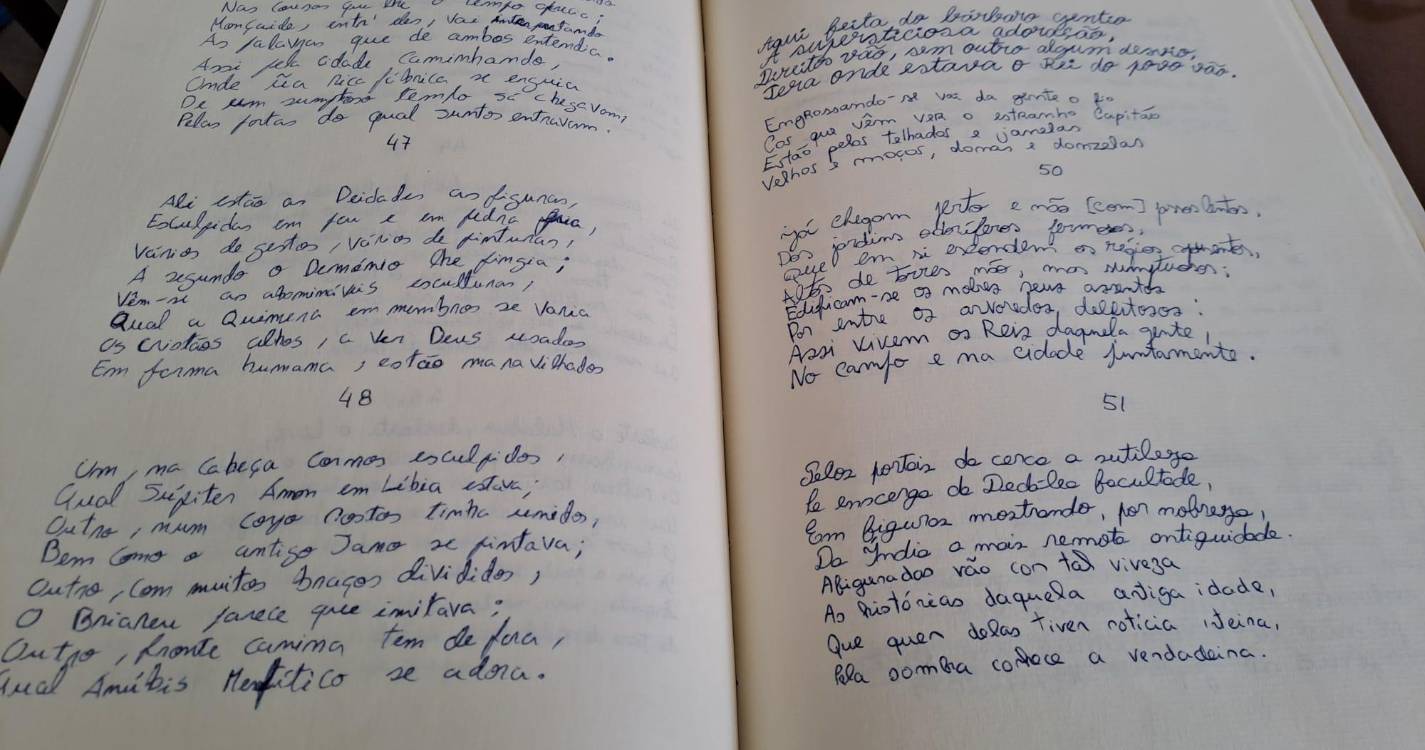 Nas cousas que lhe o tempo
Monçaide, entr' eles, vai interpretando
As palavras que de ambos entendia.
Assi pela cidade caminhando,
Onde ũa rica fábrica se erguia
De um sumptoso templo já chegavam,
Pelas portas do qual juntos entravam.
47
Ali estão as Deidades as figuras,
Esculpidas em pau e em pedra fria,
Vários de gestos, vários de pinturas,
A segundo o Demónio lhe fingia;
Vêm-se as abomináveis esculturas,
Qual a Quimera em membros se varia
Os cristãos olhos, a ver Deus usados
Em forma humana, estão maravilhados
48
Um, na cabeça cornos esculpidos,
Qual Júpiter Amon em Líbia estava;
Outro, num corpo rostos tinha unidos,
Bem como o antigo Jano se pintava;
Outro, com muitos braços divididos,
O Briareu parece que imitava;
Outro, fronte canina tem de fora,
Qual Anúbis Menfítico se adora.
Aqui feita do bárbaro gentio
A supersticiosa adoração,
Direitos vão, sem outro algum desvio,
Pera onde estava o Rei do povo vão.
Engrossando-se vai da gente o fio
Cos que vêm ver o estranho Capitão
Estão pelos telhados e janelas
Velhos e moços, donas e donzelas
50
Já chegam perto e não [com] passos lentos,
Dos jardins odoríferos fermosos,
Que em si escondem os régios apousentos,
Altos de torres não, mas sumptuosos;
Edificam-se os nobres seus assentos
Por entre os arvoredos deleitosos:
Assi vivem os Reis daquela gente,
No campo e na cidade juntamente.
51
Pelos portais da cerca a sutileza
Se enxerga da Dedálea facultade,
Em figuras mostrando, por nobreza,
Da Índia a mais remota antiguidade.
Afiguradas vão con tal viveza
As histórias daquela antiga idade,
Que quem delas tiver notícia inteira,
Pela sombra conhece a verdadeira.